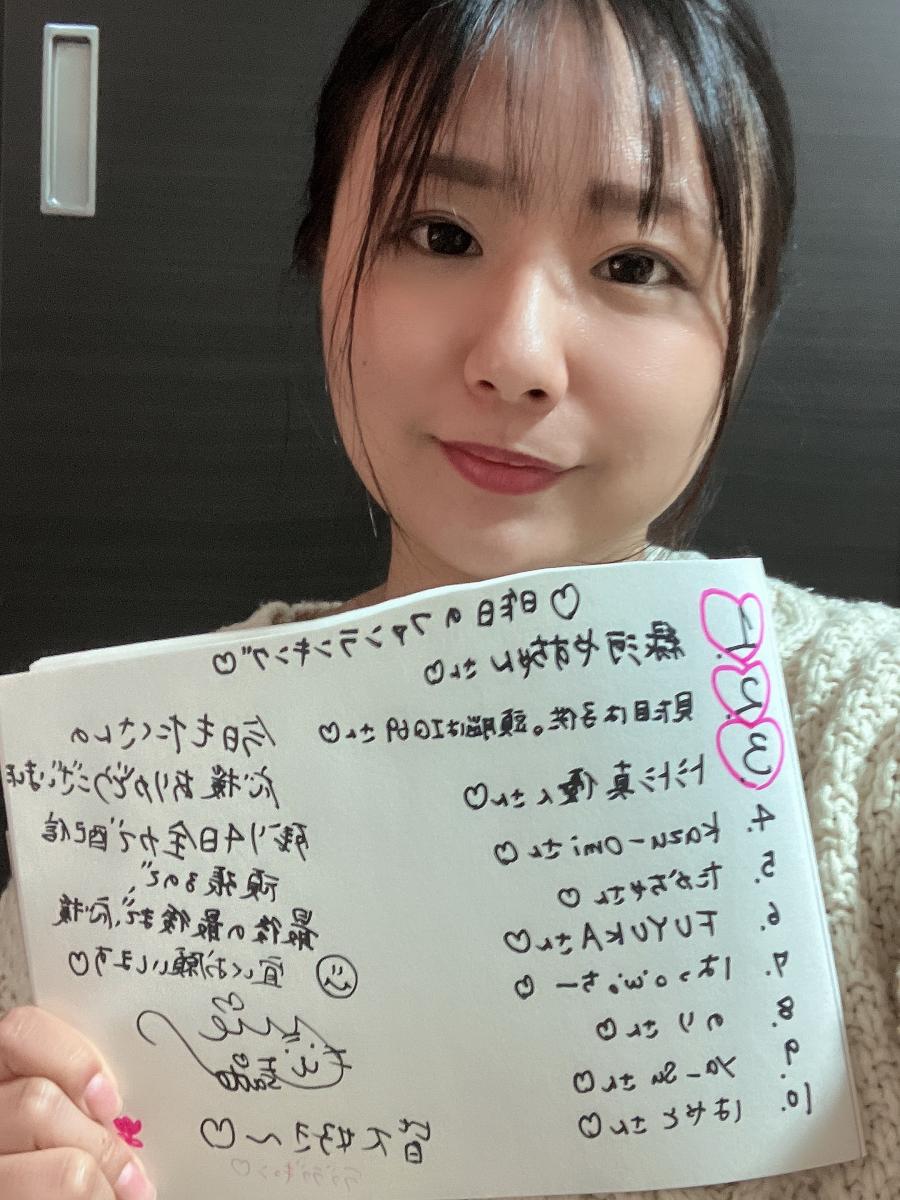 ♡昨日のファンランキング♡
1 緑河やすちゃんさん♡
2 見た目は子供。頭脳はIQ69さん♡
3. トントン真優くんさん♡
4. Kazu-omiさん♡
5. たかちゃさん♡
6. FUYUKAさん♡
7. はっ○w○ちー♡
8. のりさん♡
9. ya-suさん♡
10. はやとさん♡
今日もたくさんの
応援ありがとうございます
残り4日全力で配信
頑張るので
最後の最後まで、応援
宜しくお願いします♡
皆大好き〜♡